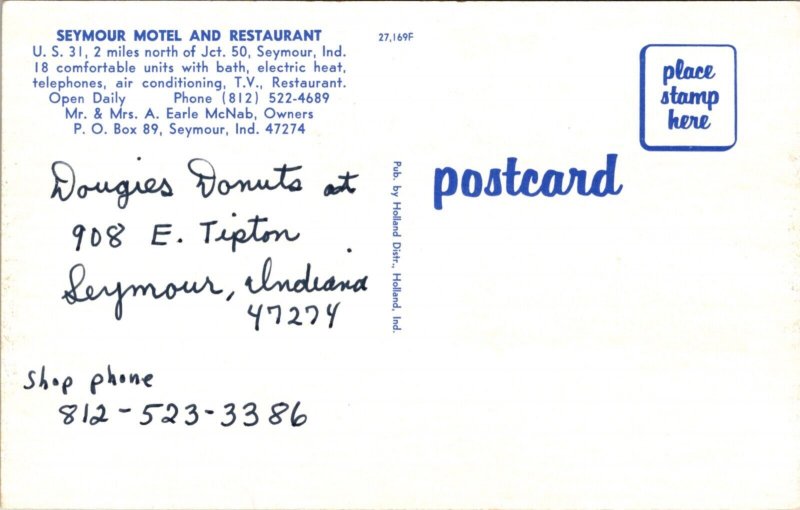 SEYMOUR MOTEL AND RESTAURANT
U. S. 31, 2 miles north of Jct. 50, Seymour, Ind.
18 comfortable units with bath, electric heat,
telephones, air conditioning, T.V., Restaurant.
Open Daily Phone (812) 522-4689
Mr. & Mrs. A. Earle McNab, Owners
P. O. Box 89, Seymour, Ind. 47274
Dougies Donuts at
908 E. Tipton
Seymour, Indiana
47274
Shop phone
812-523-3386
27,169F
Pub. by Holland Distr., Holland, Ind.
place
stamp
here
postcard